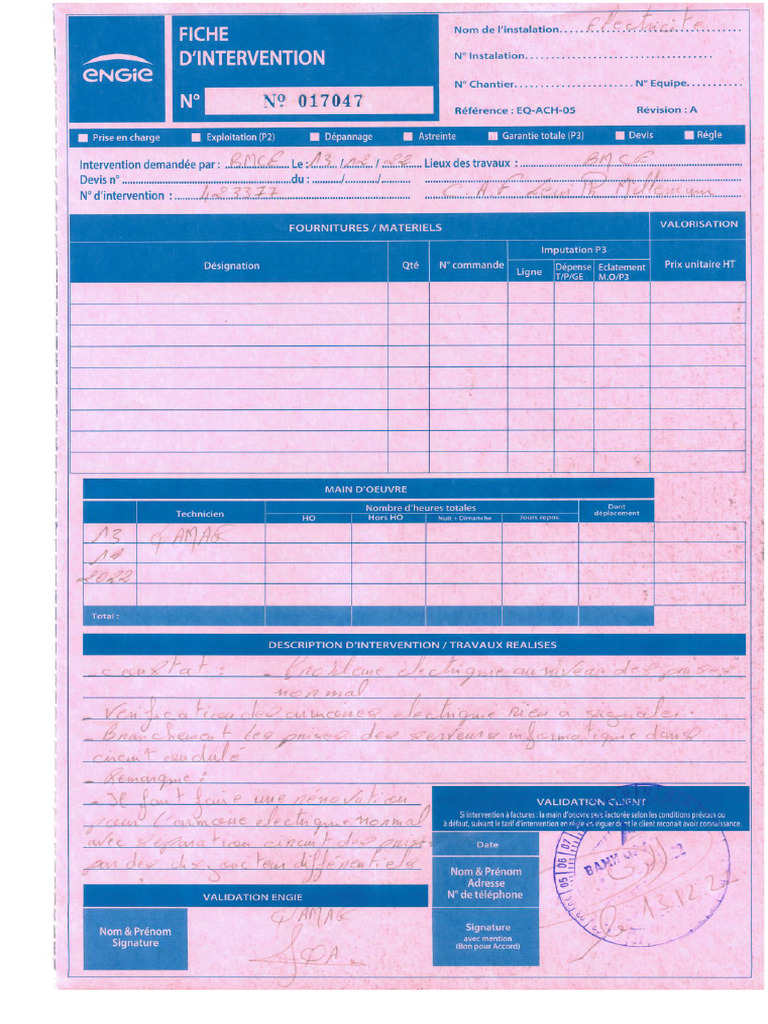 FICHE
D'INTERVENTION
ENGIE
N° Nº 017047
Nom de l'instalation Electricité
N° Instalation
N° Chantier N° Equipe
Référence : EQ-ACH-05 Révision : A
Prise en charge Exploitation (P2) Dépannage Astreinte Garantie totale (P3) Devis Régle
Intervention demandée par : BMCE Le : 13 / 12 / 22 Lieux des travaux : BMCE
Devis n° du : / /
N° d'intervention : 423377 C.A.F
FOURNITURES / MATERIELS VALORISATION
Désignation Qté N° commande Imputation P3 Prix unitaire HT
Ligne Dépense T/P/GE Eclatement M.O/P3
MAIN D'OEUVRE
Technicien Nombre d'heures totales Dont déplacement
HO Hors HO Nuit + Dimanche Jours repos
13 QAMAE
12
2022
Total :
DESCRIPTION D'INTERVENTION / TRAVAUX REALISES
- constat : - Problème electrique au niveau des prises
normal
- Verification des armoires electrique rien a signaler.
- Branchement les prises des serveurs informatique dans
circuit ondulé
- Remarque :
- Il faut faire une renovation
pour l'armoire electrique normal
avec separation circuit des prises
par des disjoncteur différentiels
VALIDATION CLIENT
Si intervention à factures : la main d'oeuvre sera facturée selon les conditions prévues ou
à défaut, suivant le tarif d'intervention en régle en viguer dont le client reconait avoir connaissance.
Date
Nom & Prénom
Adresse
N° de téléphone
Signature
avec mention
(Bon pour Accord)
BANK
13.12.22
VALIDATION ENGIE
Nom & Prénom
Signature
QAMAE